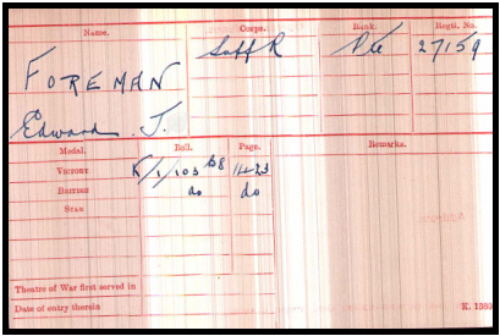 Name. Corps. Rank. Regtl. No.
FOREMAN Suff R Pte 27159
Edward J.
Medal. Roll. Page. Remarks.
VICTORY K/1/103 B8 1423
BRITISH do do
STAR
Theatre of War first served in
Date of entry therein
K. 1380